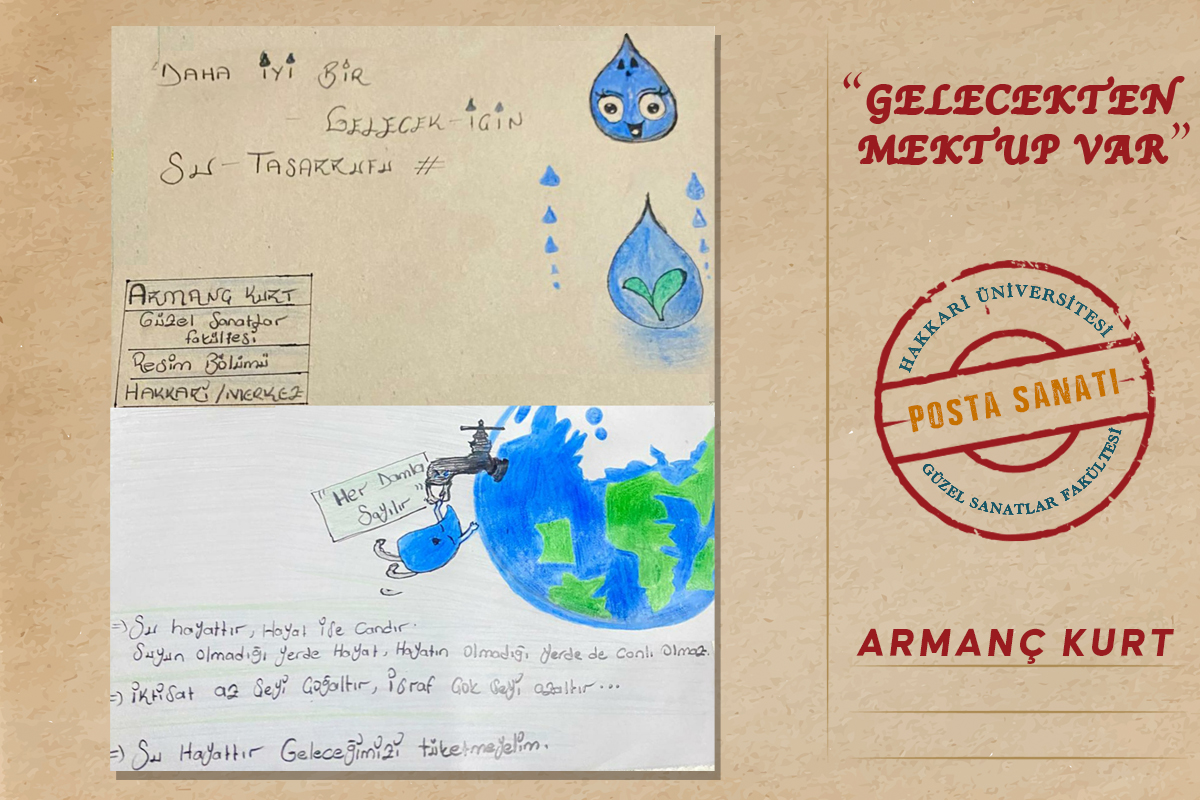 DAHA İYİ BİR
GELECEK-İÇİN
SU-TASARRUFU #
ARMANÇ KURT
Güzel Sanatlar
fakültesi
Resim Bölümü
HAKKARİ/MERKEZ
"Her Damla
Sayılır"
=) Su hayattır, Hayat ise Candır.
Suyun olmadığı yerde Hayat, Hayatın olmadığı yerde de canlı olmaz.
=) iktisat az şeyi çoğaltır, israf çok şeyi azaltır...
=) Su Hayattır Geleceğimizi tüketmeyelim.
"GELECEKTEN
MEKTUP VAR"
HAKKARİ ÜNİVERSİTESİ
POSTA SANATI
GÜZEL SANATLAR FAKÜLTESİ
ARMANÇ KURT